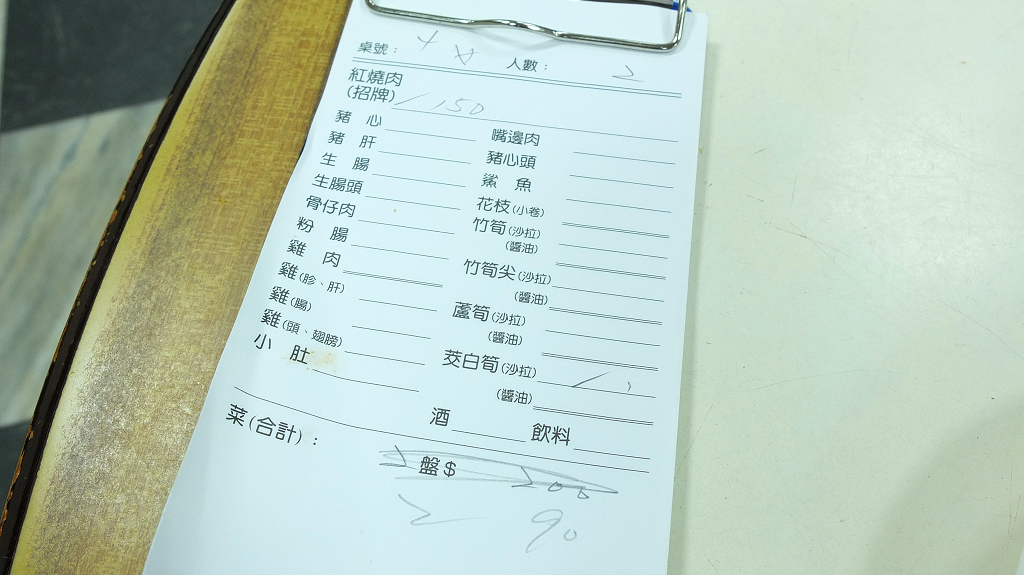 桌號： 人數： 2
紅燒肉
(招牌) / 150
豬 心 嘴邊肉
豬 肝 豬心頭
生 腸 鯊 魚
生腸頭 花枝(小卷)
骨仔肉 竹筍(沙拉)
(醬油)
粉 腸 竹筍尖(沙拉)
(醬油)
雞 肉 蘆筍(沙拉)
(醬油)
雞(胗、肝) 茭白筍(沙拉) /
(醬油)
雞(腸)
雞(頭、翅膀)
小 肚
酒 飲料
菜(合計)： 2 盤$ 200
2 90